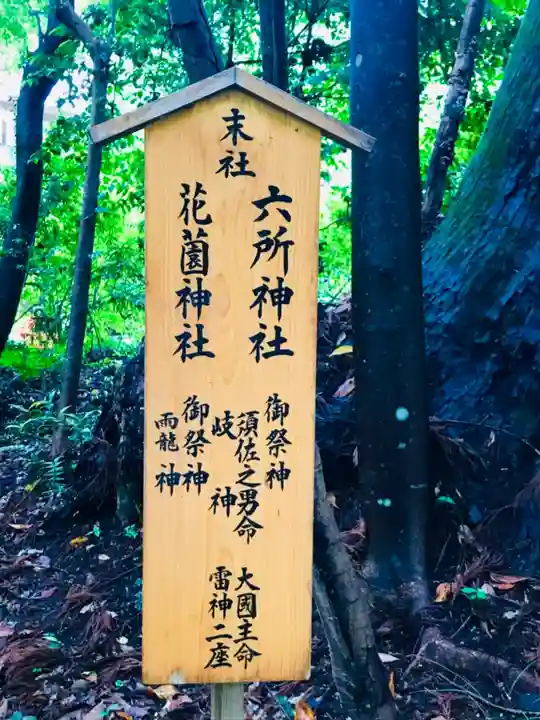 末社
六所神社
御祭神
須佐之男命
大國主命
岐神
雷神二座
花薗神社
御祭神
雨龍神